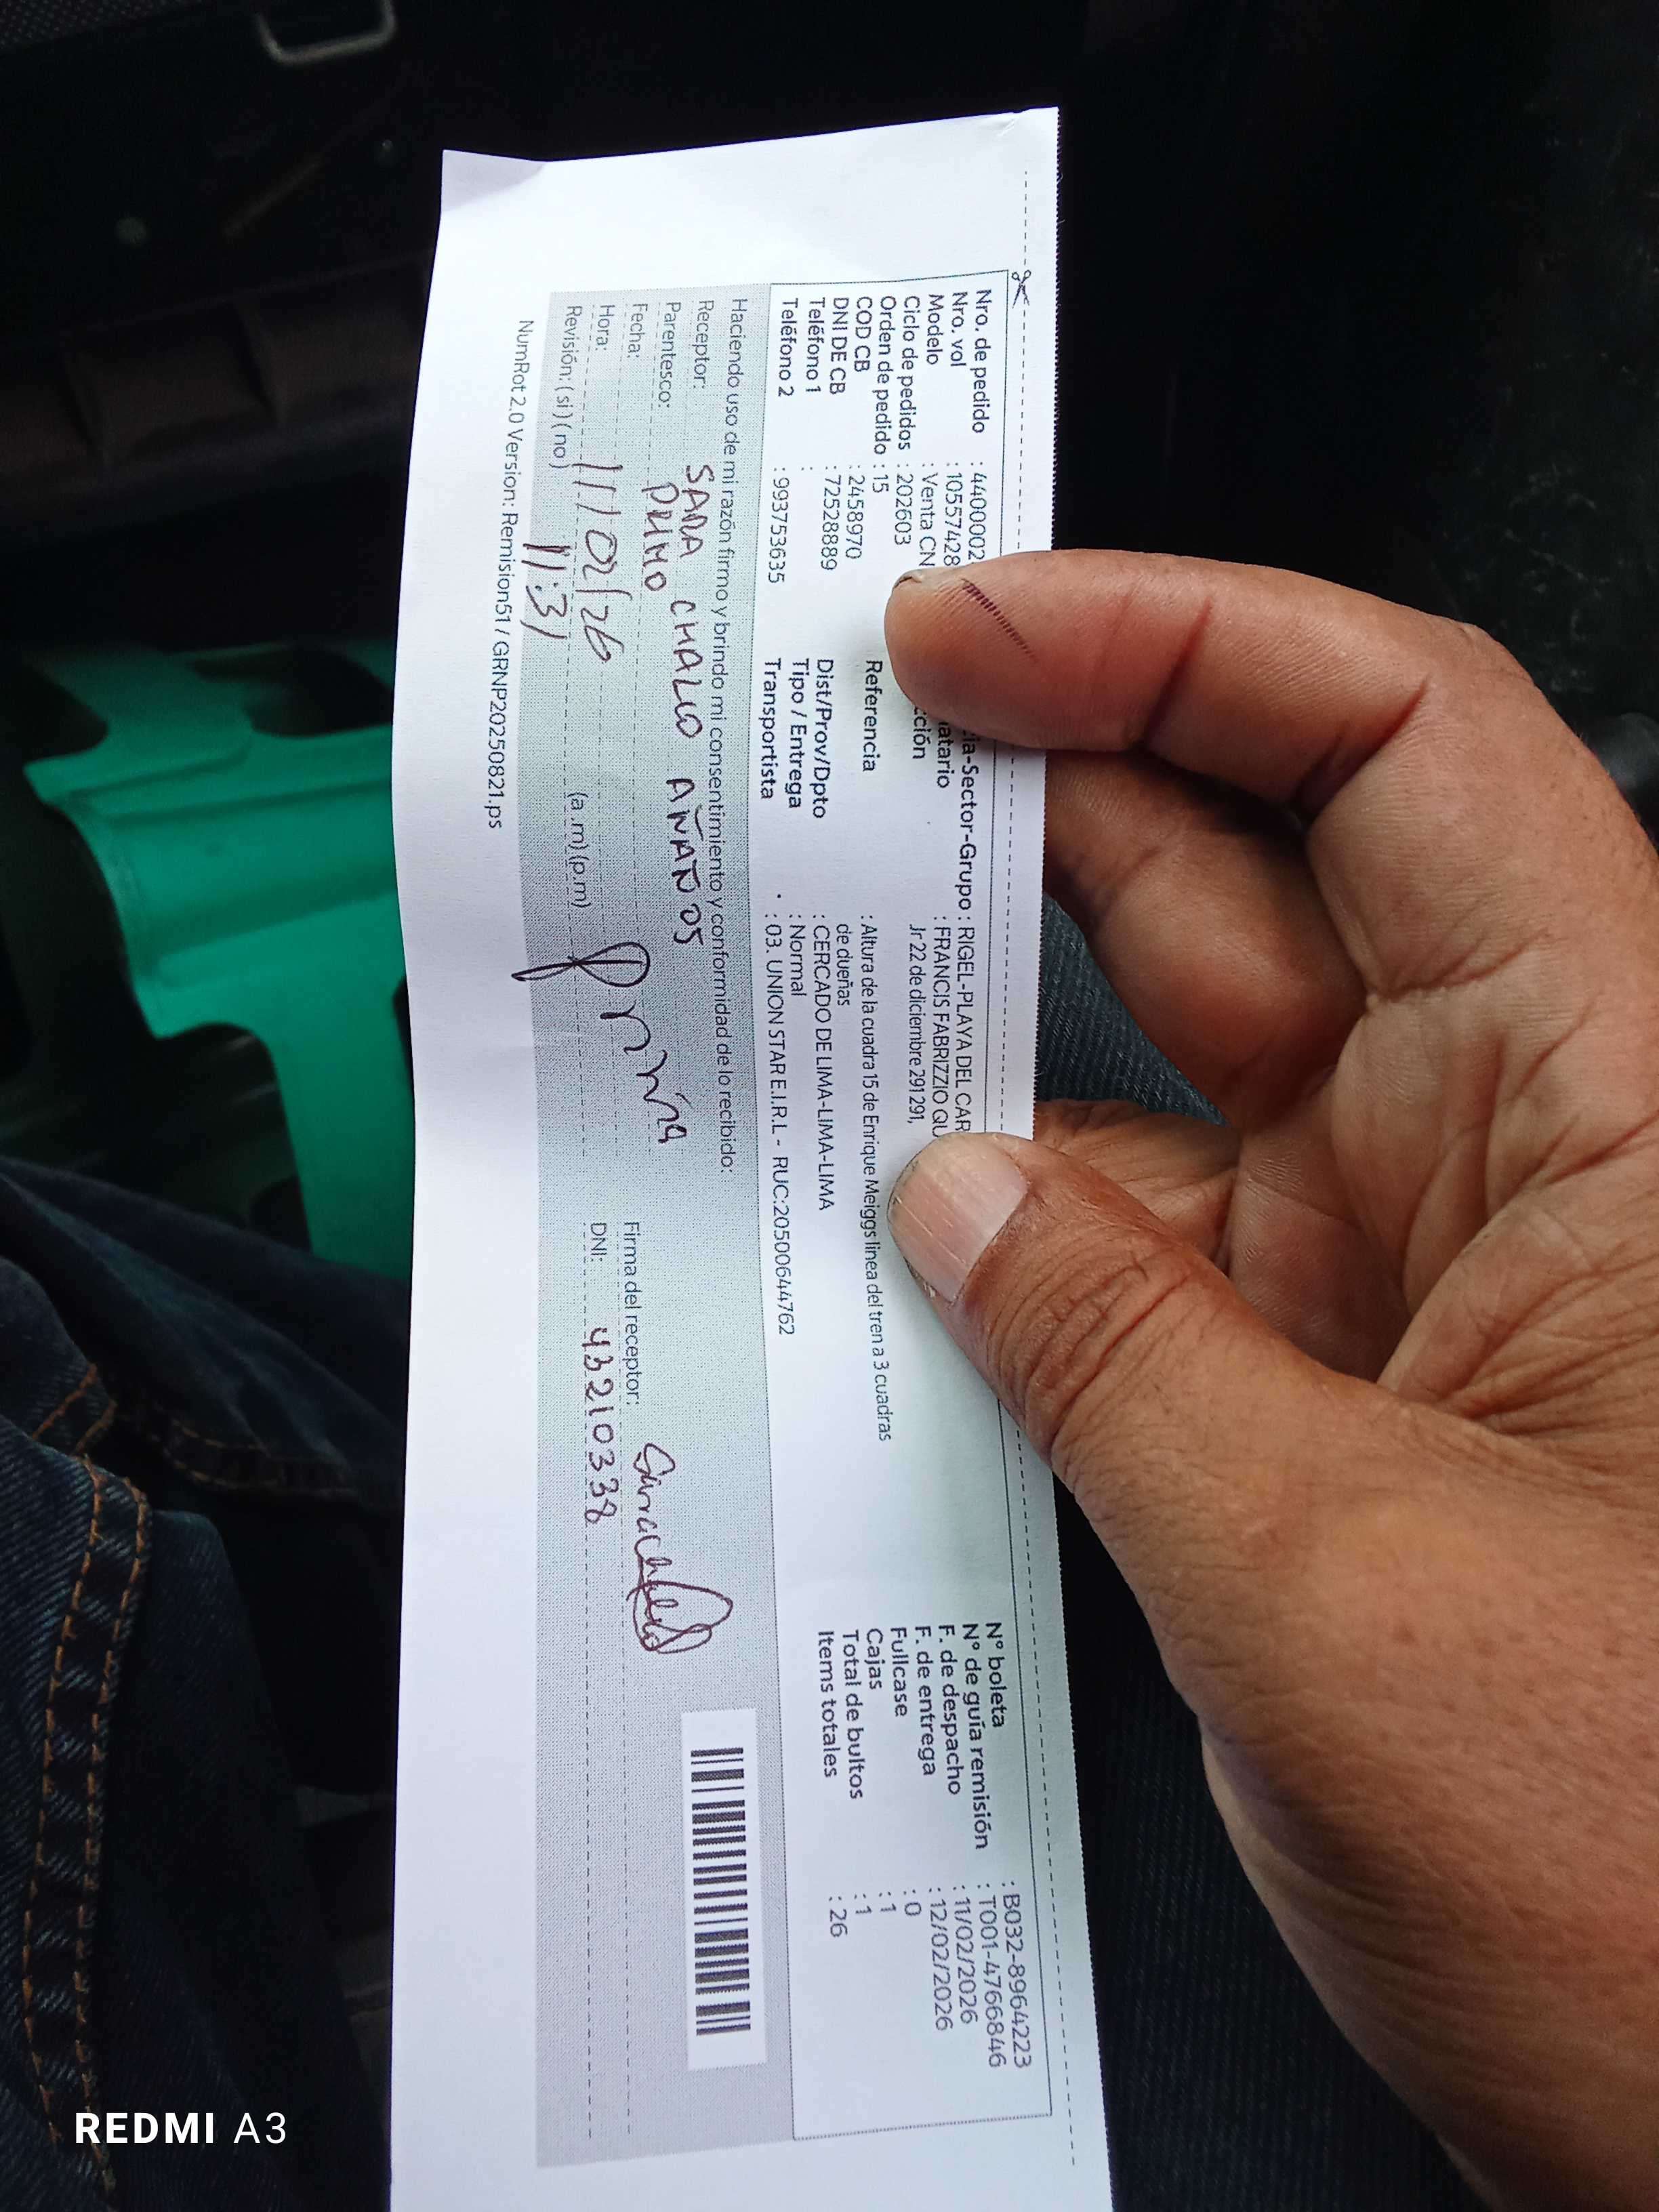 Nro. de pedido : 4400002
Nro. vol : 10557428
Modelo : Venta CN
Ciclo de pedidos : 202603
Orden de pedido : 15
COD CB : 2458970
DNI DE CB : 72528889
Teléfono 1 :
Teléfono 2 : 993753635
cia-Sector-Grupo : RIGEL-PLAYA DEL CAR
natario : FRANCIS FABRIZZIO QU
cción Jr 22 de diciembre 291 291,
Referencia : Altura de la cuadra 15 de Enrique Meiggs linea del tren a 3 cuadras
de dueñas
Dist/Prov/Dpto : CERCADO DE LIMA-LIMA-LIMA
Tipo / Entrega : Normal
Transportista : 03. UNION STAR E.I.R.L - RUC:20500644762
N° boleta : B032-8964223
N° de guía remisión : T001-4766846
F. de despacho : 11/02/2026
F. de entrega : 12/02/2026
Fullcase : 0
Cajas : 1
Total de bultos : 1
Items totales : 26
Haciendo uso de mi razón firmo y brindo mi consentimiento y conformidad de lo recibido:
Receptor: SARA CHALCO AÑAÑOS
Parentesco: PRIMO
Fecha: 11/02/26
Hora: 11:31 (a.m) (p.m)
Revisión: ( si ) ( no )
Firma del receptor:
DNI: 43210338
NumRot 2.0 Version: Remision51 / GRNP20250821.ps
REDMI A3